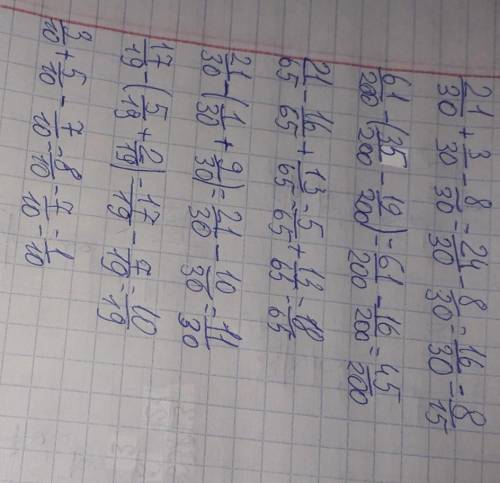 21/30 + 3/30 - 8/30 = 24/30 - 8/30 = 16/30 = 8/15
61/200 - (35/200 - 19/200) = 61/200 - 16/200 = 45/200
21/65 - 16/65 + 13/65 = 5/65 + 13/65 = 18/65
21/30 - (1/30 + 9/30) = 21/30 - 10/30 = 11/30
17/19 - (5/19 + 2/19) = 17/19 - 7/19 = 10/19
3/10 + 5/10 - 7/10 = 8/10 - 7/10 = 1/10